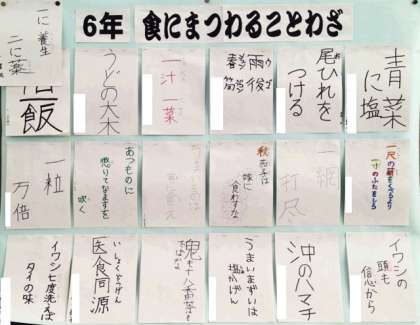 6年 食にまつわることわざ
一に養生
二に薬
飯
うどの大木
一汁一菜
雨後
春筍
尾ひれを
つける
青菜
に塩
一粒
万倍
あつものに
懲りてなますを
吹く
秋茄子は
嫁に
食わすな
一網
打尽
イワシ七度洗えば
タイの味
いしょくどうげん
医食同源
鬼も十八番茶も
うまいまずいは
塩かげん
沖のハマチ
イワシの
頭も
信心から